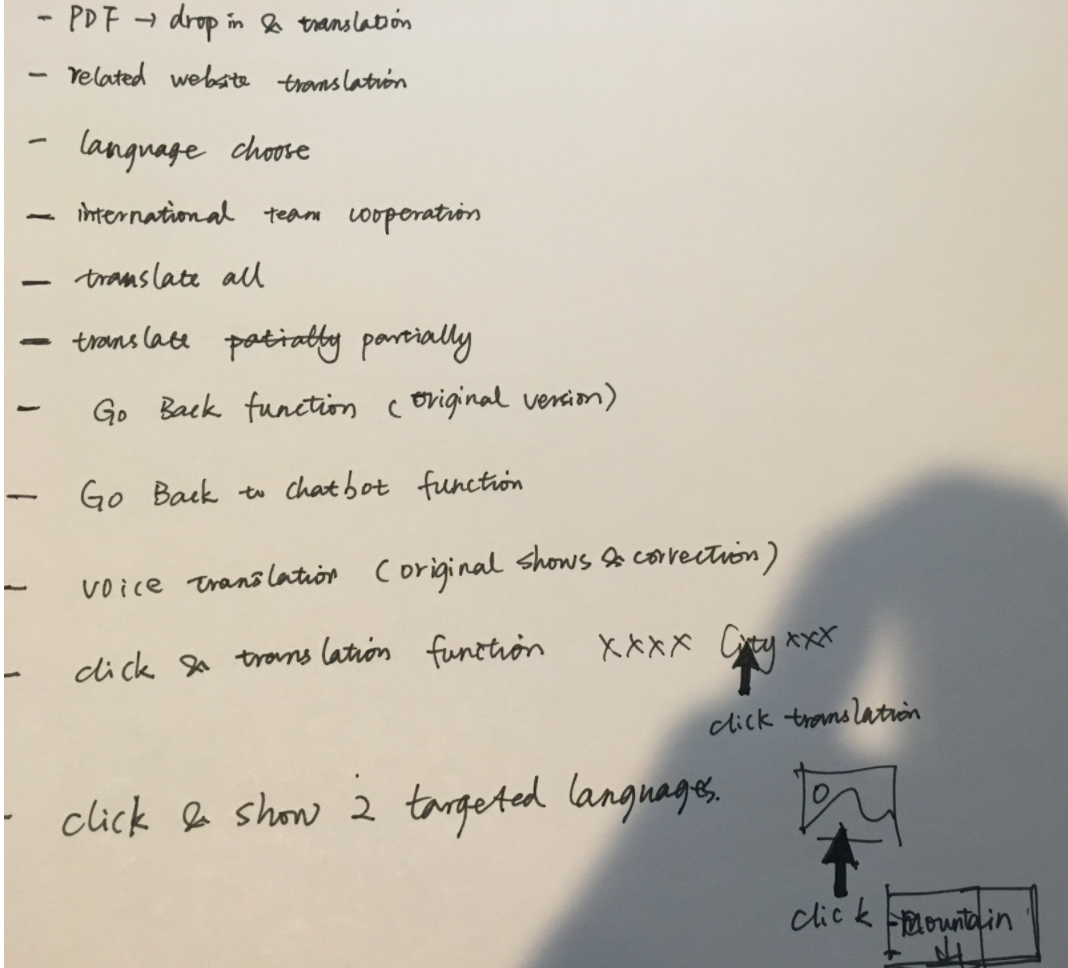 - PDF → drop in & translation
- related website translation
- language choose
- international team cooperation
- translate all
- translate patially partially
- Go Back function (original version)
- Go Back to chatbot function
- voice translation (original shows & correction)
- click & translation function XXXX City xxx
click translation
- click & show 2 targeted languages.
click
Mountain
山